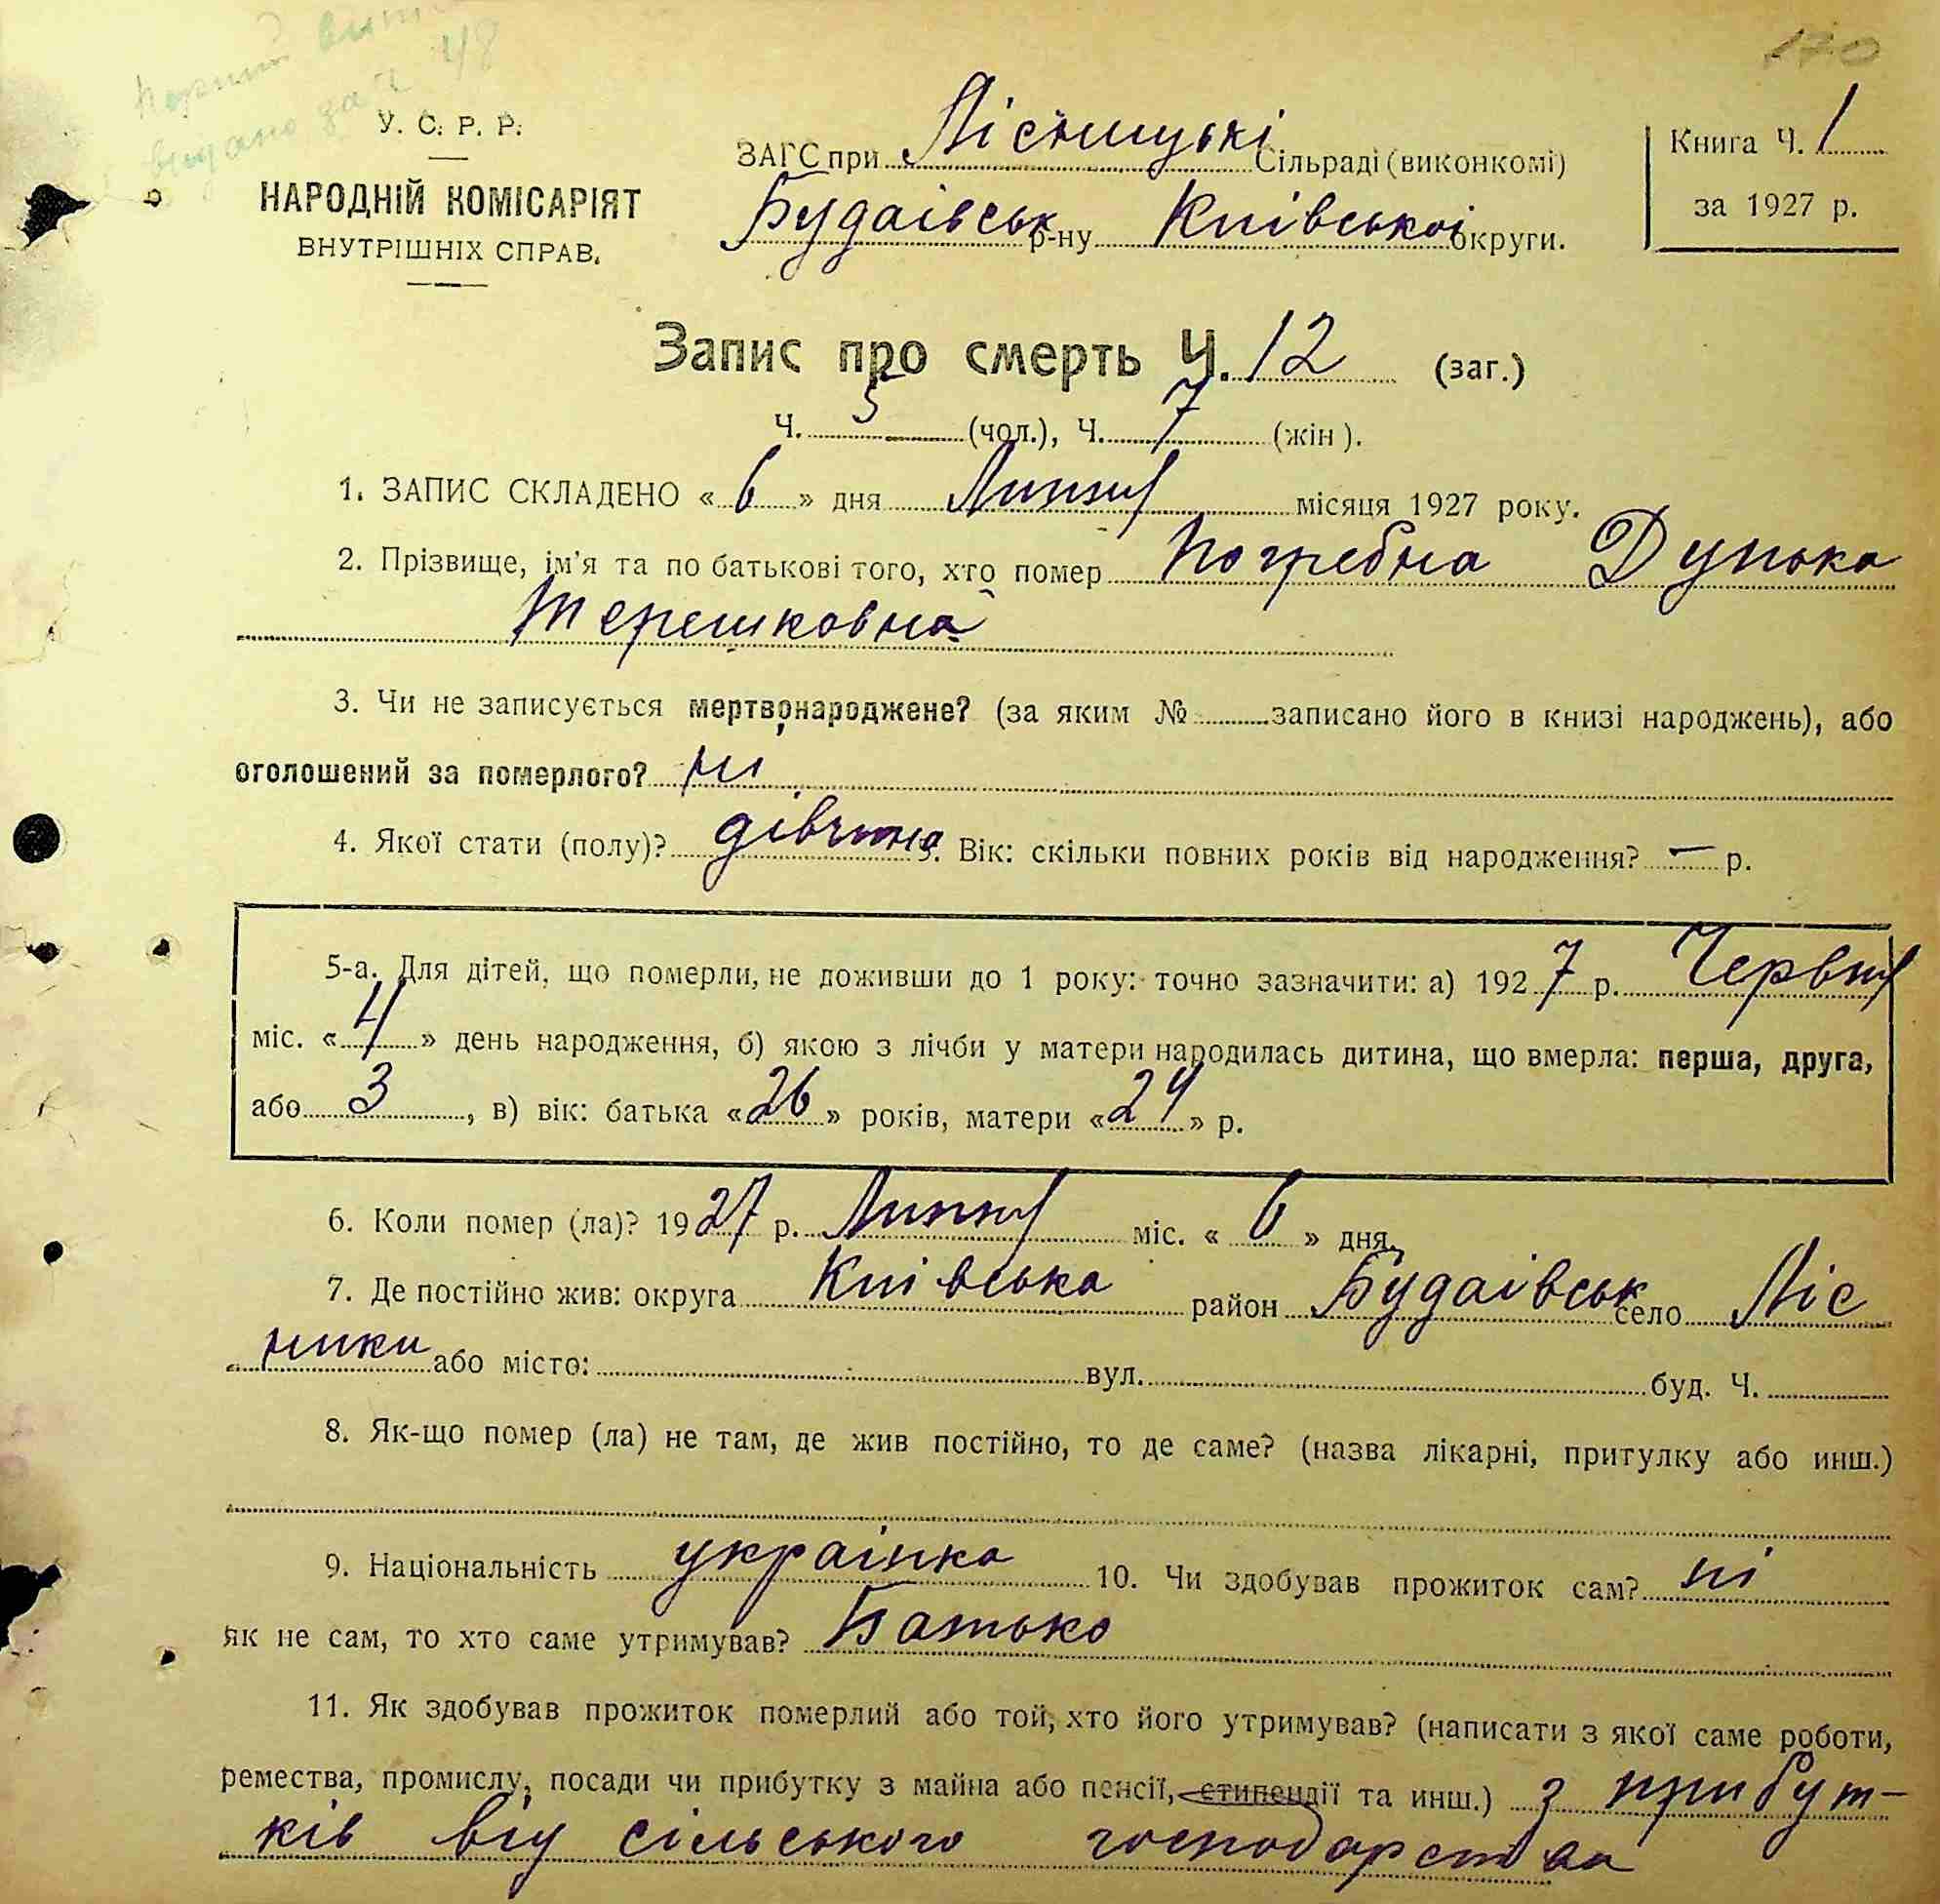 170
видано за 48
У. С. Р. Р.
НАРОДНІЙ КОМІСАРІЯТ
ВНУТРІШНІХ СПРАВ.
ЗАГС при Лісницькі Сільраді (виконкомі)
Будаівськ р-ну Київськоі округи.
Книга Ч. 1
за 1927 р.
Запис про смерть Ч. 12 (заг.)
Ч. 5 (чол.), Ч. 7 (жін).
1. ЗАПИС СКЛАДЕНО « 6 » дня Липня місяця 1927 року.
2. Прізвище, ім'я та по батькові того, хто помер Погребна Дунька
Терешковна
3. Чи не записується мертвонароджене? (за яким № записано його в книзі народжень), або
оголошений за померлого? ні
4. Якої стати (полу)? дівчина 5. Вік: скільки повних років від народження? — р.
5-а. Для дітей, що померли, не доживши до 1 року: точно зазначити: а) 1927 р. Червня
міс. « 4 » день народження, б) якою з лічби у матери народилась дитина, що вмерла: перша, друга,
або 3, в) вік: батька « 26 » років, матери « 24 » р.
6. Коли помер (ла)? 1927 р. Липня міс. « 6 » дня.
7. Де постійно жив: округа Київська район Будаівськ село Ліс
ники або місто: вул. буд. Ч.
8. Як-що помер (ла) не там, де жив постійно, то де саме? (назва лікарні, притулку або инш.)
9. Національність украінка 10. Чи здобував прожиток сам? ні
як не сам, то хто саме утримував? Батько
11. Як здобував прожиток померлий або той, хто його утримував? (написати з якої саме роботи,
ремества, промислу, посади чи прибутку з майна або пенсії, стипендії та инш.) з прибут-
ків від сільського господарства